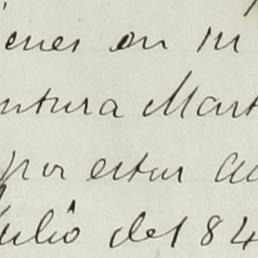 enes en m
ntura Mart
por estar au
Julio del 84